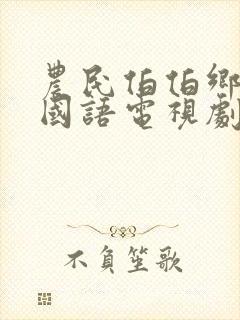 農民伯伯鄉
國語電視劇
不負笙歌